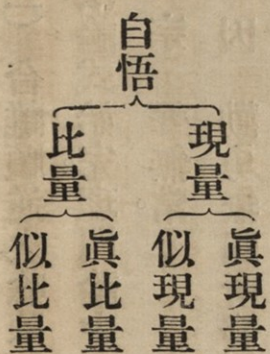 自悟
現量
比量
眞現量
似現量
眞比量
似比量